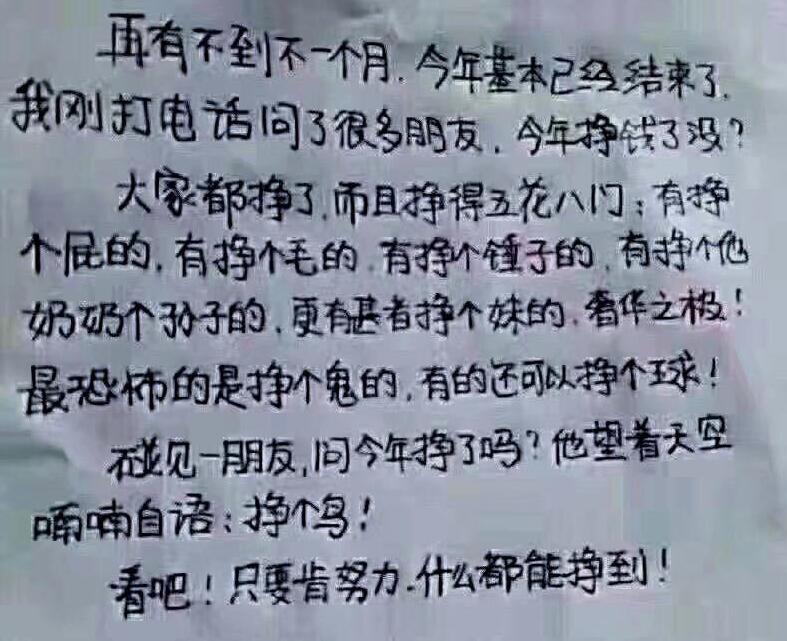 再有不到不一个月.今年基本已经结束了.
我刚打电话问了很多朋友.今年挣钱了没?
大家都挣了.而且挣得五花八门:有挣
个屁的.有挣个毛的.有挣个锤子的.有挣个他
奶奶个孙子的.更有甚者挣个妹的.奢华之极!
最恐怖的是挣个鬼的,有的还可以挣个球!
碰见一朋友,问今年挣了吗?他望着天空
喃喃自语:挣个鸟!
看吧!只要肯努力.什么都能挣到!